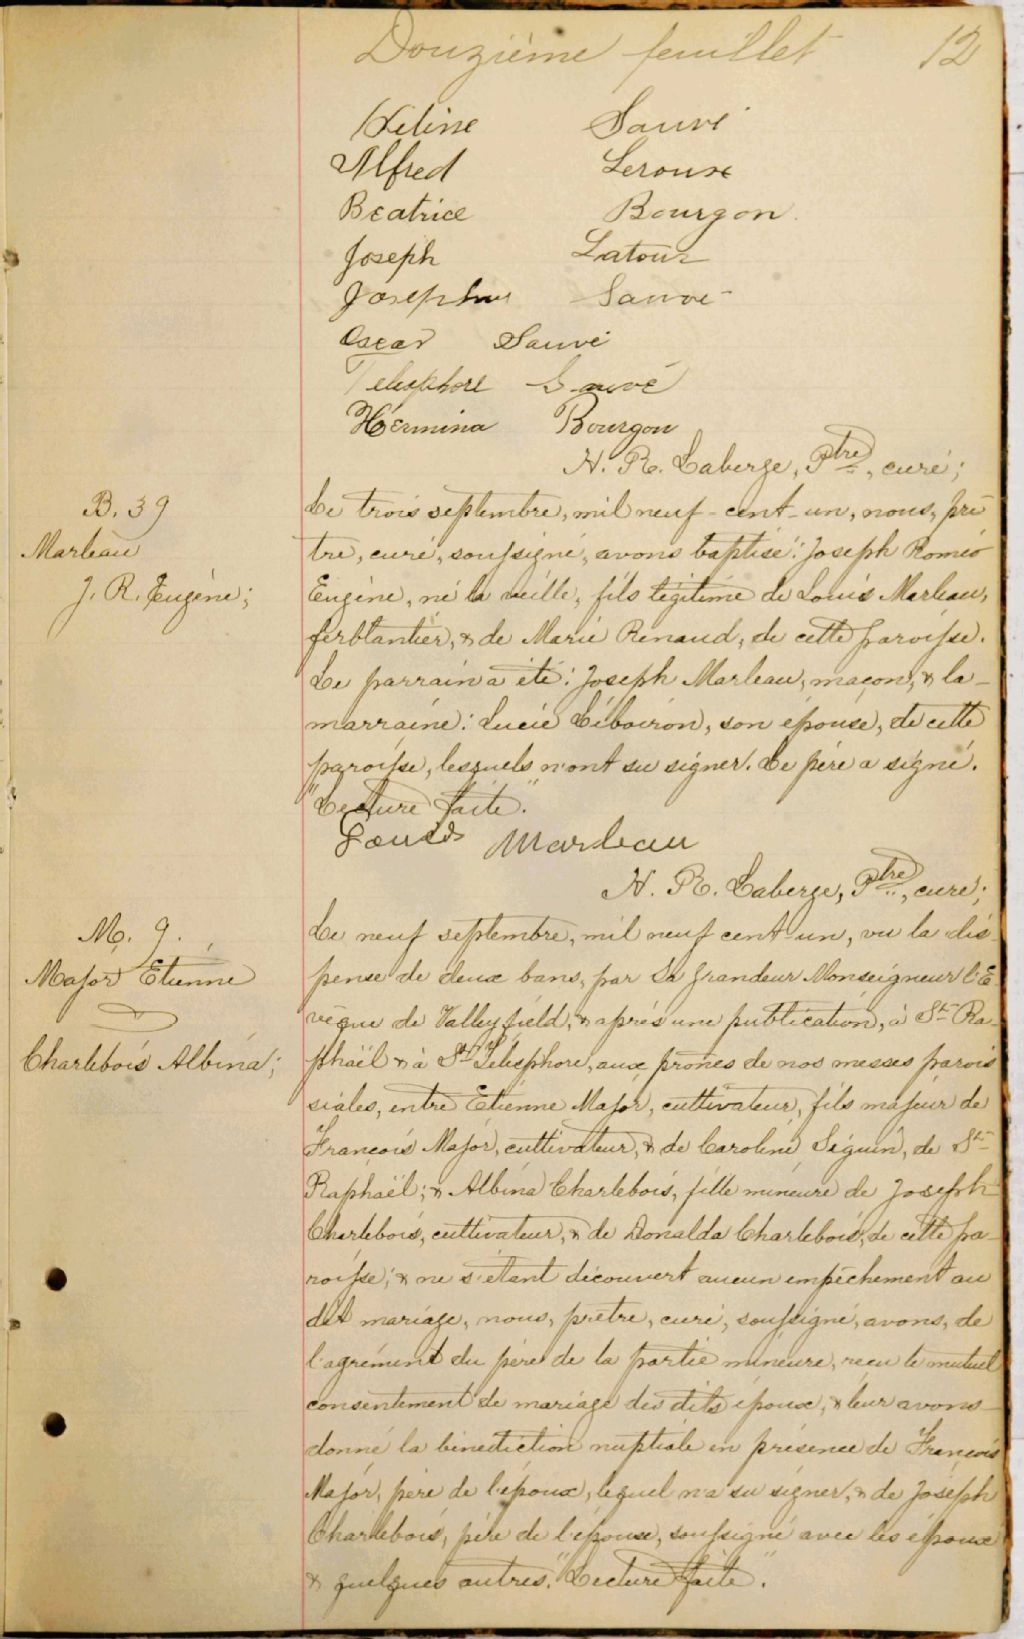 Douzième feuillet 12
Sauvé
Alfred Leroux
Beatrice Bourgon
Joseph Latour
Josephus Sauvé
Oscar Sauvé
Telesphore Sauvé
Hermina Bourgon
N. R. Laberge, Ptre, curé;
B. 39
Marleau
J. R. Eugène;
Le trois septembre, mil neuf-cent-un, nous, prê
tre, curé, soussigné, avons baptisé: Joseph Roméo
Eugène, né la veille, fils légitime de Louis Marleau,
ferblantier, & de Marie Renaud, de cette paroisse.
Le parrain a été: Joseph Marleau, maçon, & la
marraine: Lucie Léboiron, son épouse, de cette
paroisse, lesquels n'ont su signer. Le père a signé.
"Lecture faite."
Louis Marleau
N. R. Laberge, Ptre, curé;
M. 9.
Major Etienne
Charlebois Albina;
Le neuf septembre, mil neuf cent-un, vu la dis-
pense de deux bans, par Sa Grandeur Monseigneur l'E-
vêque de Valleyfield, & après une publication, à St Ra-
phaël & à St Télesphore, aux prônes de nos messes parois
siales, entre Etienne Major, cultivateur, fils majeur de
François Major, cultivateur, & de Caroline Séguin, de St
Raphaël; & Albina Charlebois, fille mineure de Joseph
Charlebois, cultivateur, & de Donalda Charlebois, de cette pa-
roisse; & ne s'étant découvert aucun empêchement au
dit mariage, nous, prêtre, curé, soussigné, avons, de
l'agrément du père de la partie mineure, reçu le mutuel
consentement de mariage des dits époux, & leur avons
donné la bénédiction nuptiale en présence de François
Major, père de l'époux, lequel n'a su signer, & de Joseph
Charlebois, père de l'épouse, soussigné avec les époux
& quelques autres. "Lecture faite."